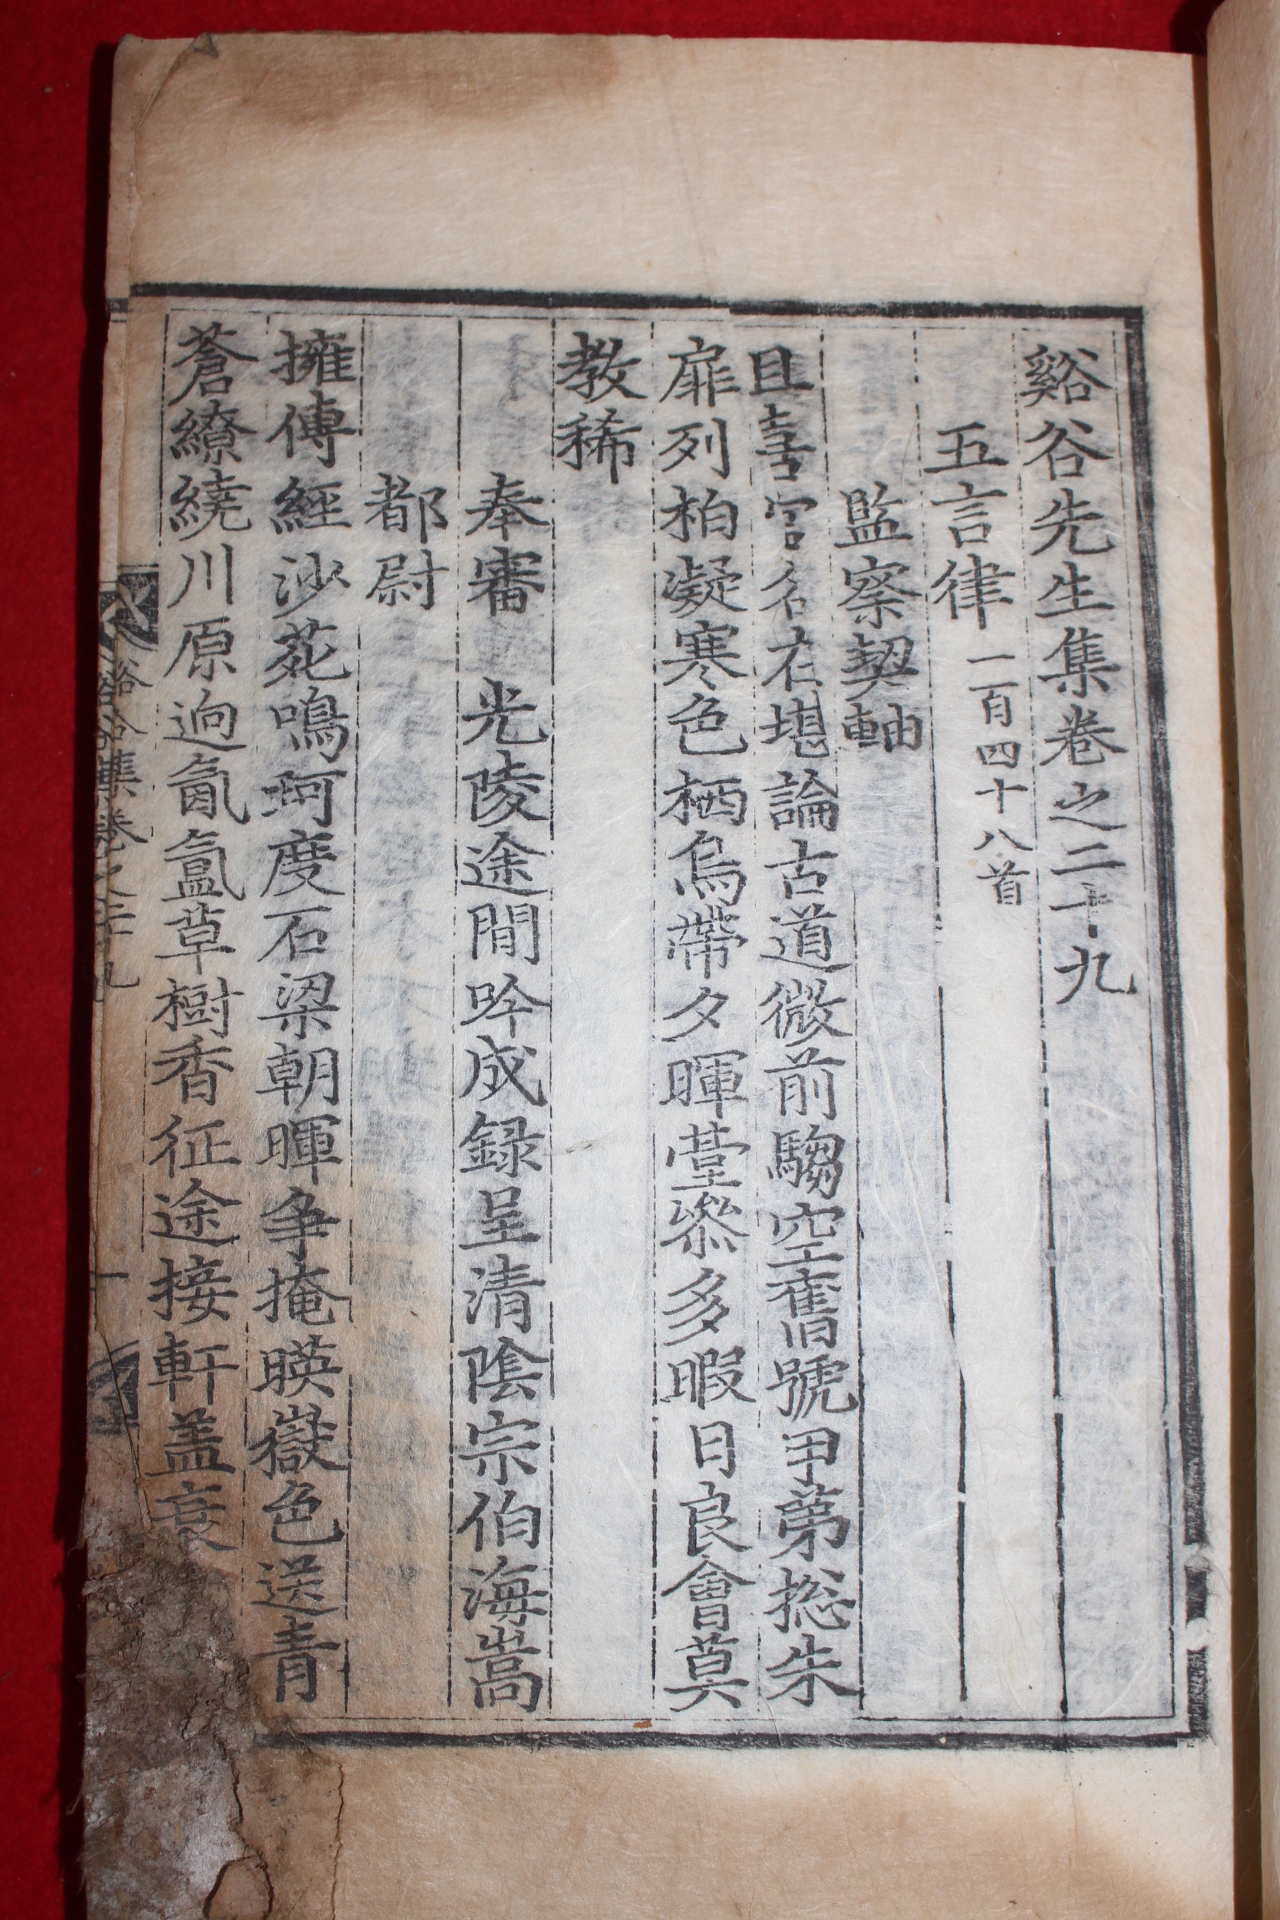 谿谷先生集卷之二十九
五言律一百四十八首
監察契軸
且喜官名在堪論古道微前騶空舊號甲第摠朱
扉列柏凝寒色栖烏帶夕暉䑓叅多暇日良會莫
教稀
奉審 光陵途間吟成録呈清陰宗伯海嵩
都尉
擁傳經沙苑鳴珂度石梁朝暉争掩暎嶽色送青
蒼繚繞川原逈氤氳草樹香征途接軒盖哀
谿谷集卷之二十九 一